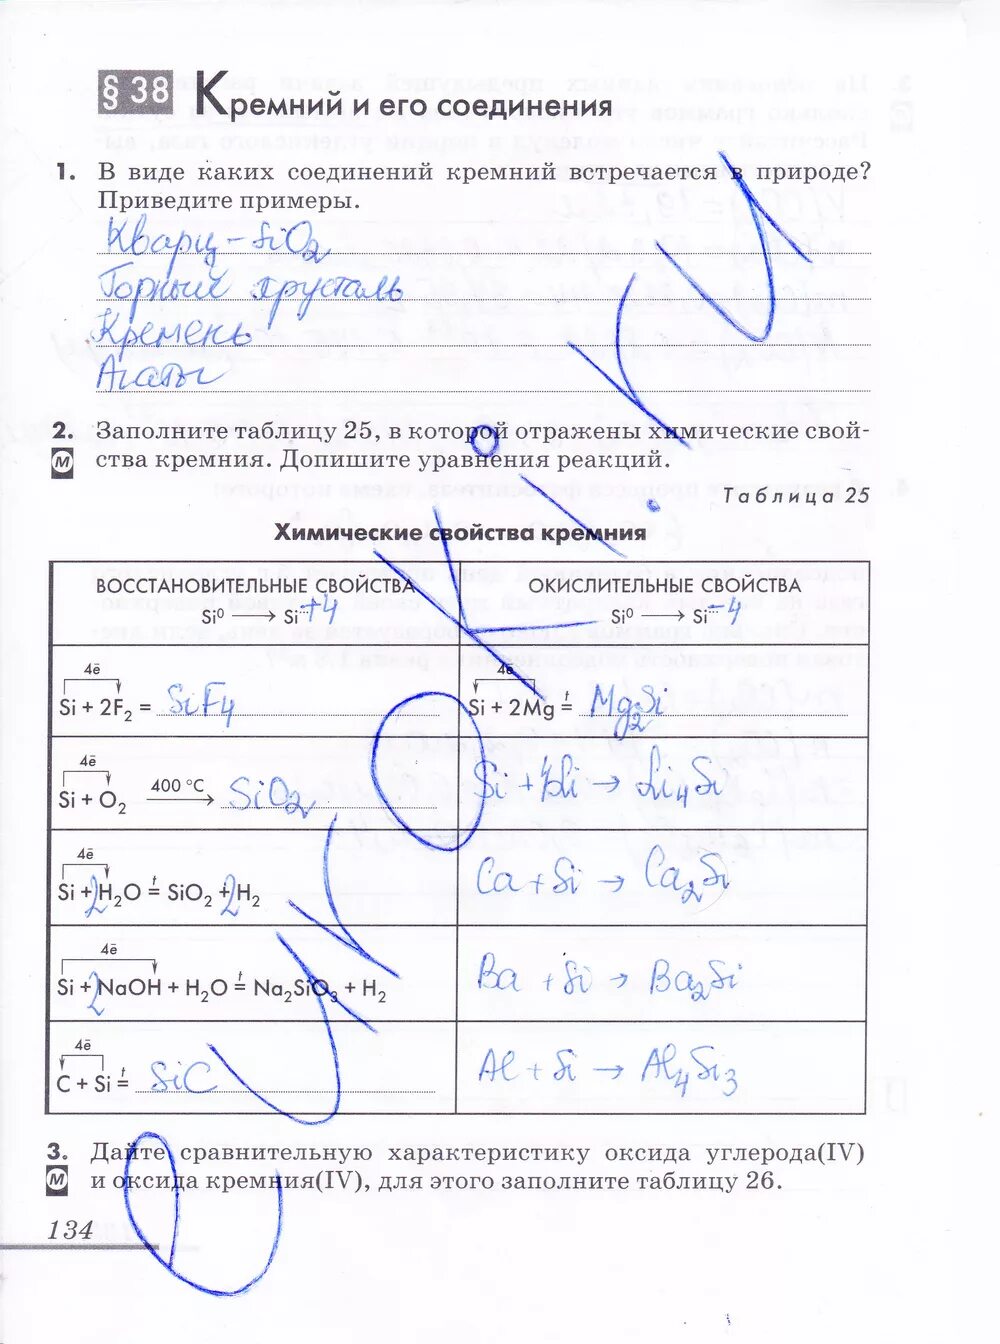 § 38 Кремний и его соединения
1. В виде каких соединений кремний встречается в природе?
Приведите примеры.
Кварц – SiO₂
Горный хрусталь
Кремень
Агаты
2. Заполните таблицу 25, в которой отражены химические свой-
М ства кремния. Допишите уравнения реакций.
Таблица 25
Химические свойства кремния
ВОССТАНОВИТЕЛЬНЫЕ СВОЙСТВА
Si⁰ → Si⁺⁴
ОКИСЛИТЕЛЬНЫЕ СВОЙСТВА
Si⁰ → Si⁻⁴
4ē
Si + 2F₂ = SiF₄
4ē
Si + 2Mg =ᵗ Mg₂Si
4ē
Si + O₂ 400 °C → SiO₂
Si + 4Li → Li₄Si
4ē
Si + 2H₂O =ᵗ SiO₂ + 2H₂
Ca + Si → Ca₂Si
4ē
Si + 2NaOH + H₂O =ᵗ Na₂SiO₃ + H₂
Ba + Si → Ba₂Si
4ē
C + Si =ᵗ SiC
Al + Si → Al₄Si₃
3. Дайте сравнительную характеристику оксида углерода(IV)
М и оксида кремния(IV), для этого заполните таблицу 26.
134